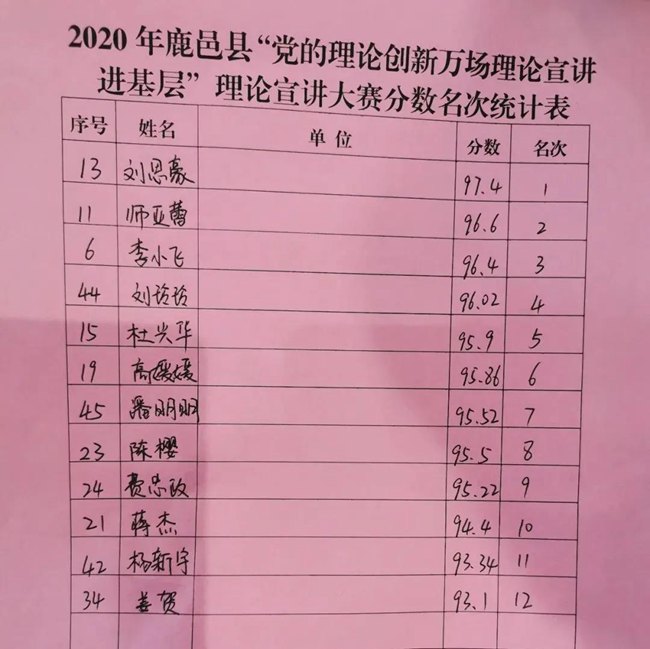 2020年鹿邑县“党的理论创新万场理论宣讲
进基层”理论宣讲大赛分数名次统计表
序号 姓名 单位 分数 名次
13 刘思豪 97.4 1
11 师亚蕾 96.6 2
6 李小飞 96.4 3
44 刘玲玲 96.02 4
15 杜兴华 95.9 5
19 高媛媛 95.86 6
45 潘明明 95.52 7
23 陈樱 95.5 8
24 费忠政 95.22 9
21 蒋杰 94.4 10
42 杨新宇 93.34 11
34 贺 93.1 12